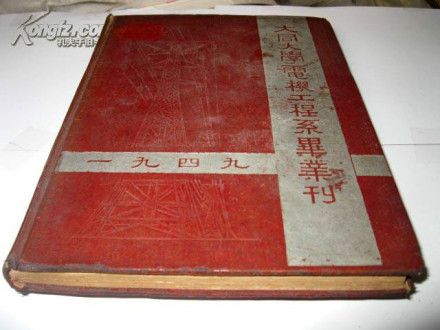 大同大學電機工程系畢業刊
一九四九
孔夫子旧书网